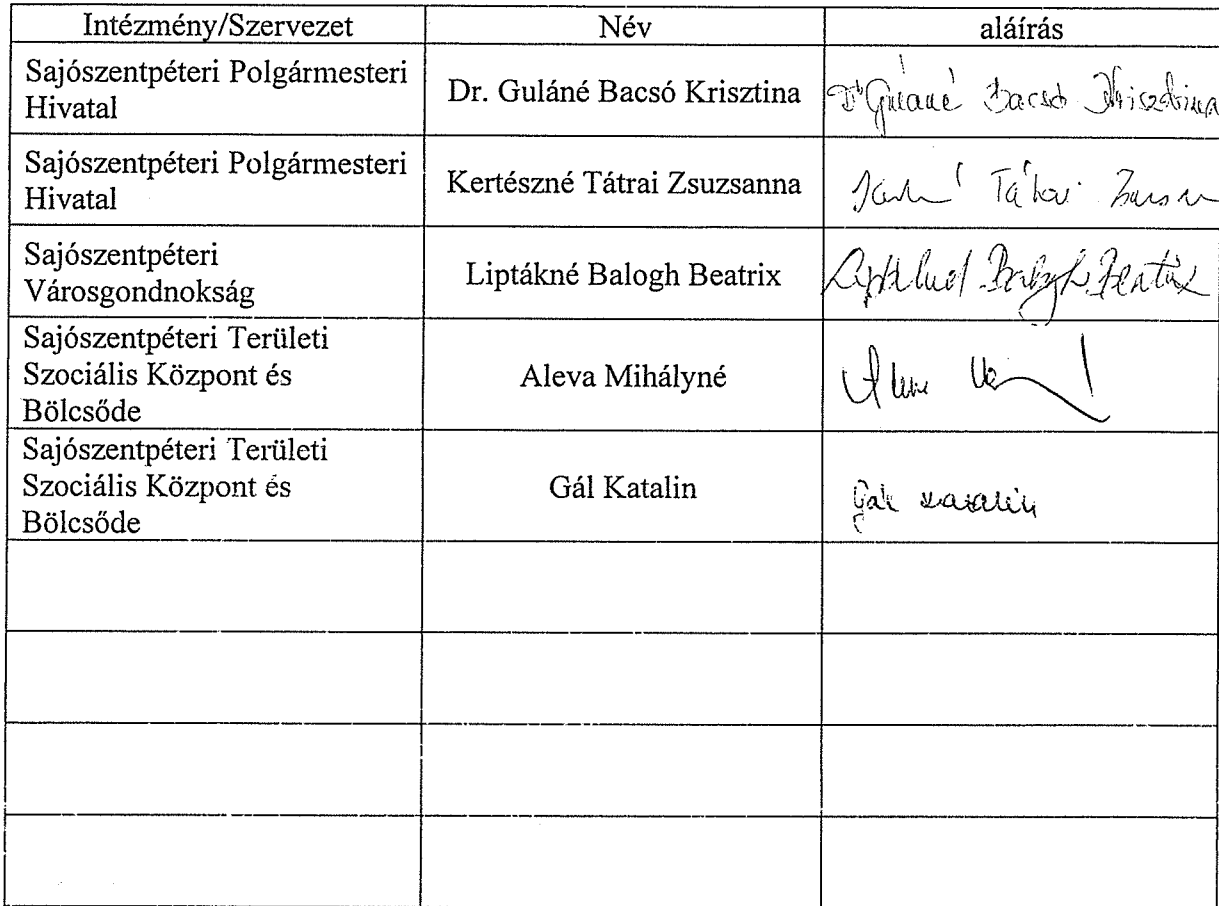 Intézmény/Szervezet Név aláírás
Sajószentpéteri Polgármesteri
Hivatal
Dr. Guláné Bacsó Krisztina
Dr Guláné Bacsó Krisztina
Sajószentpéteri Polgármesteri
Hivatal
Kertészné Tátrai Zsuzsanna
Tátrai
Sajószentpéteri
Városgondnokság
Liptákné Balogh Beatrix
Liptákné Balogh Beatrix
Sajószentpéteri Területi
Szociális Központ és
Bölcsőde
Aleva Mihályné
Sajószentpéteri Területi
Szociális Központ és
Bölcsőde
Gál Katalin
Gál Katalin